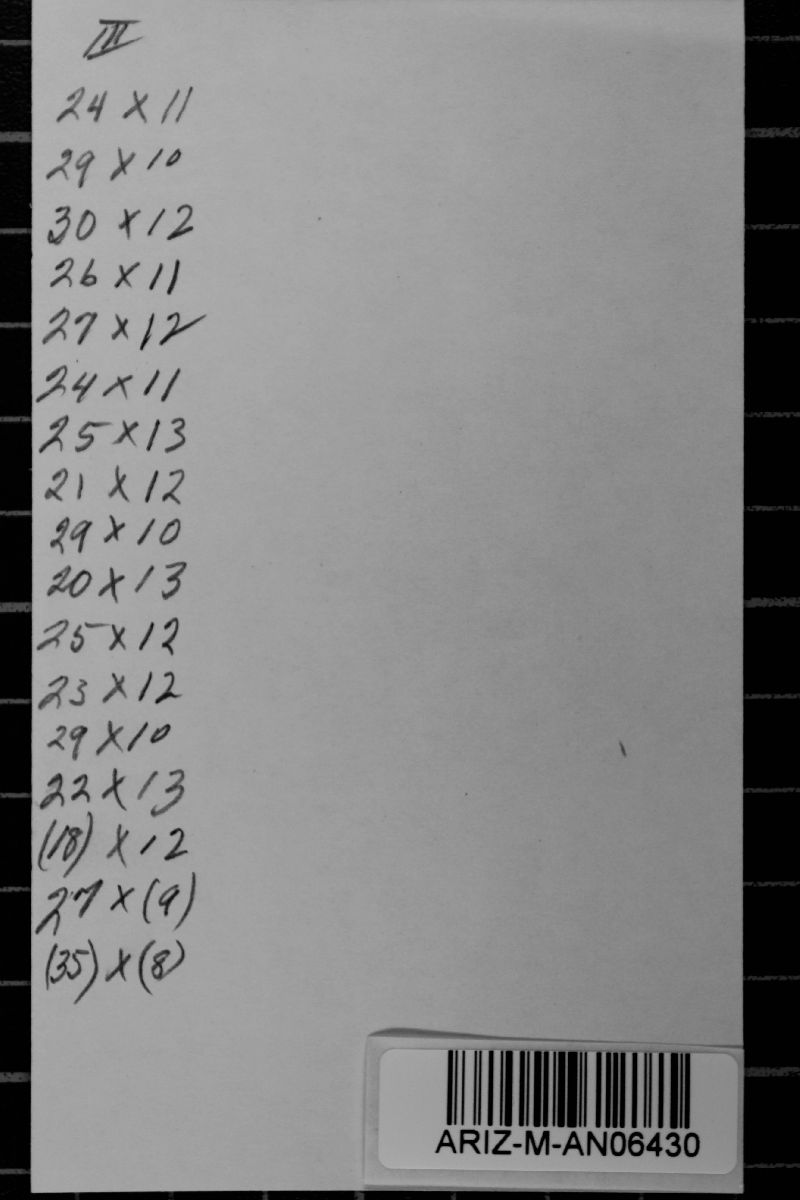 III
24 x 11
29 x 10
30 x 12
26 x 11
27 x 12
24 x 11
25 x 13
21 x 12
29 x 10
20 x 13
25 x 12
23 x 12
29 x 10
22 x 13
(18) x 12
27 x (9)
(35) x (8)
ARIZ-M-AN06430